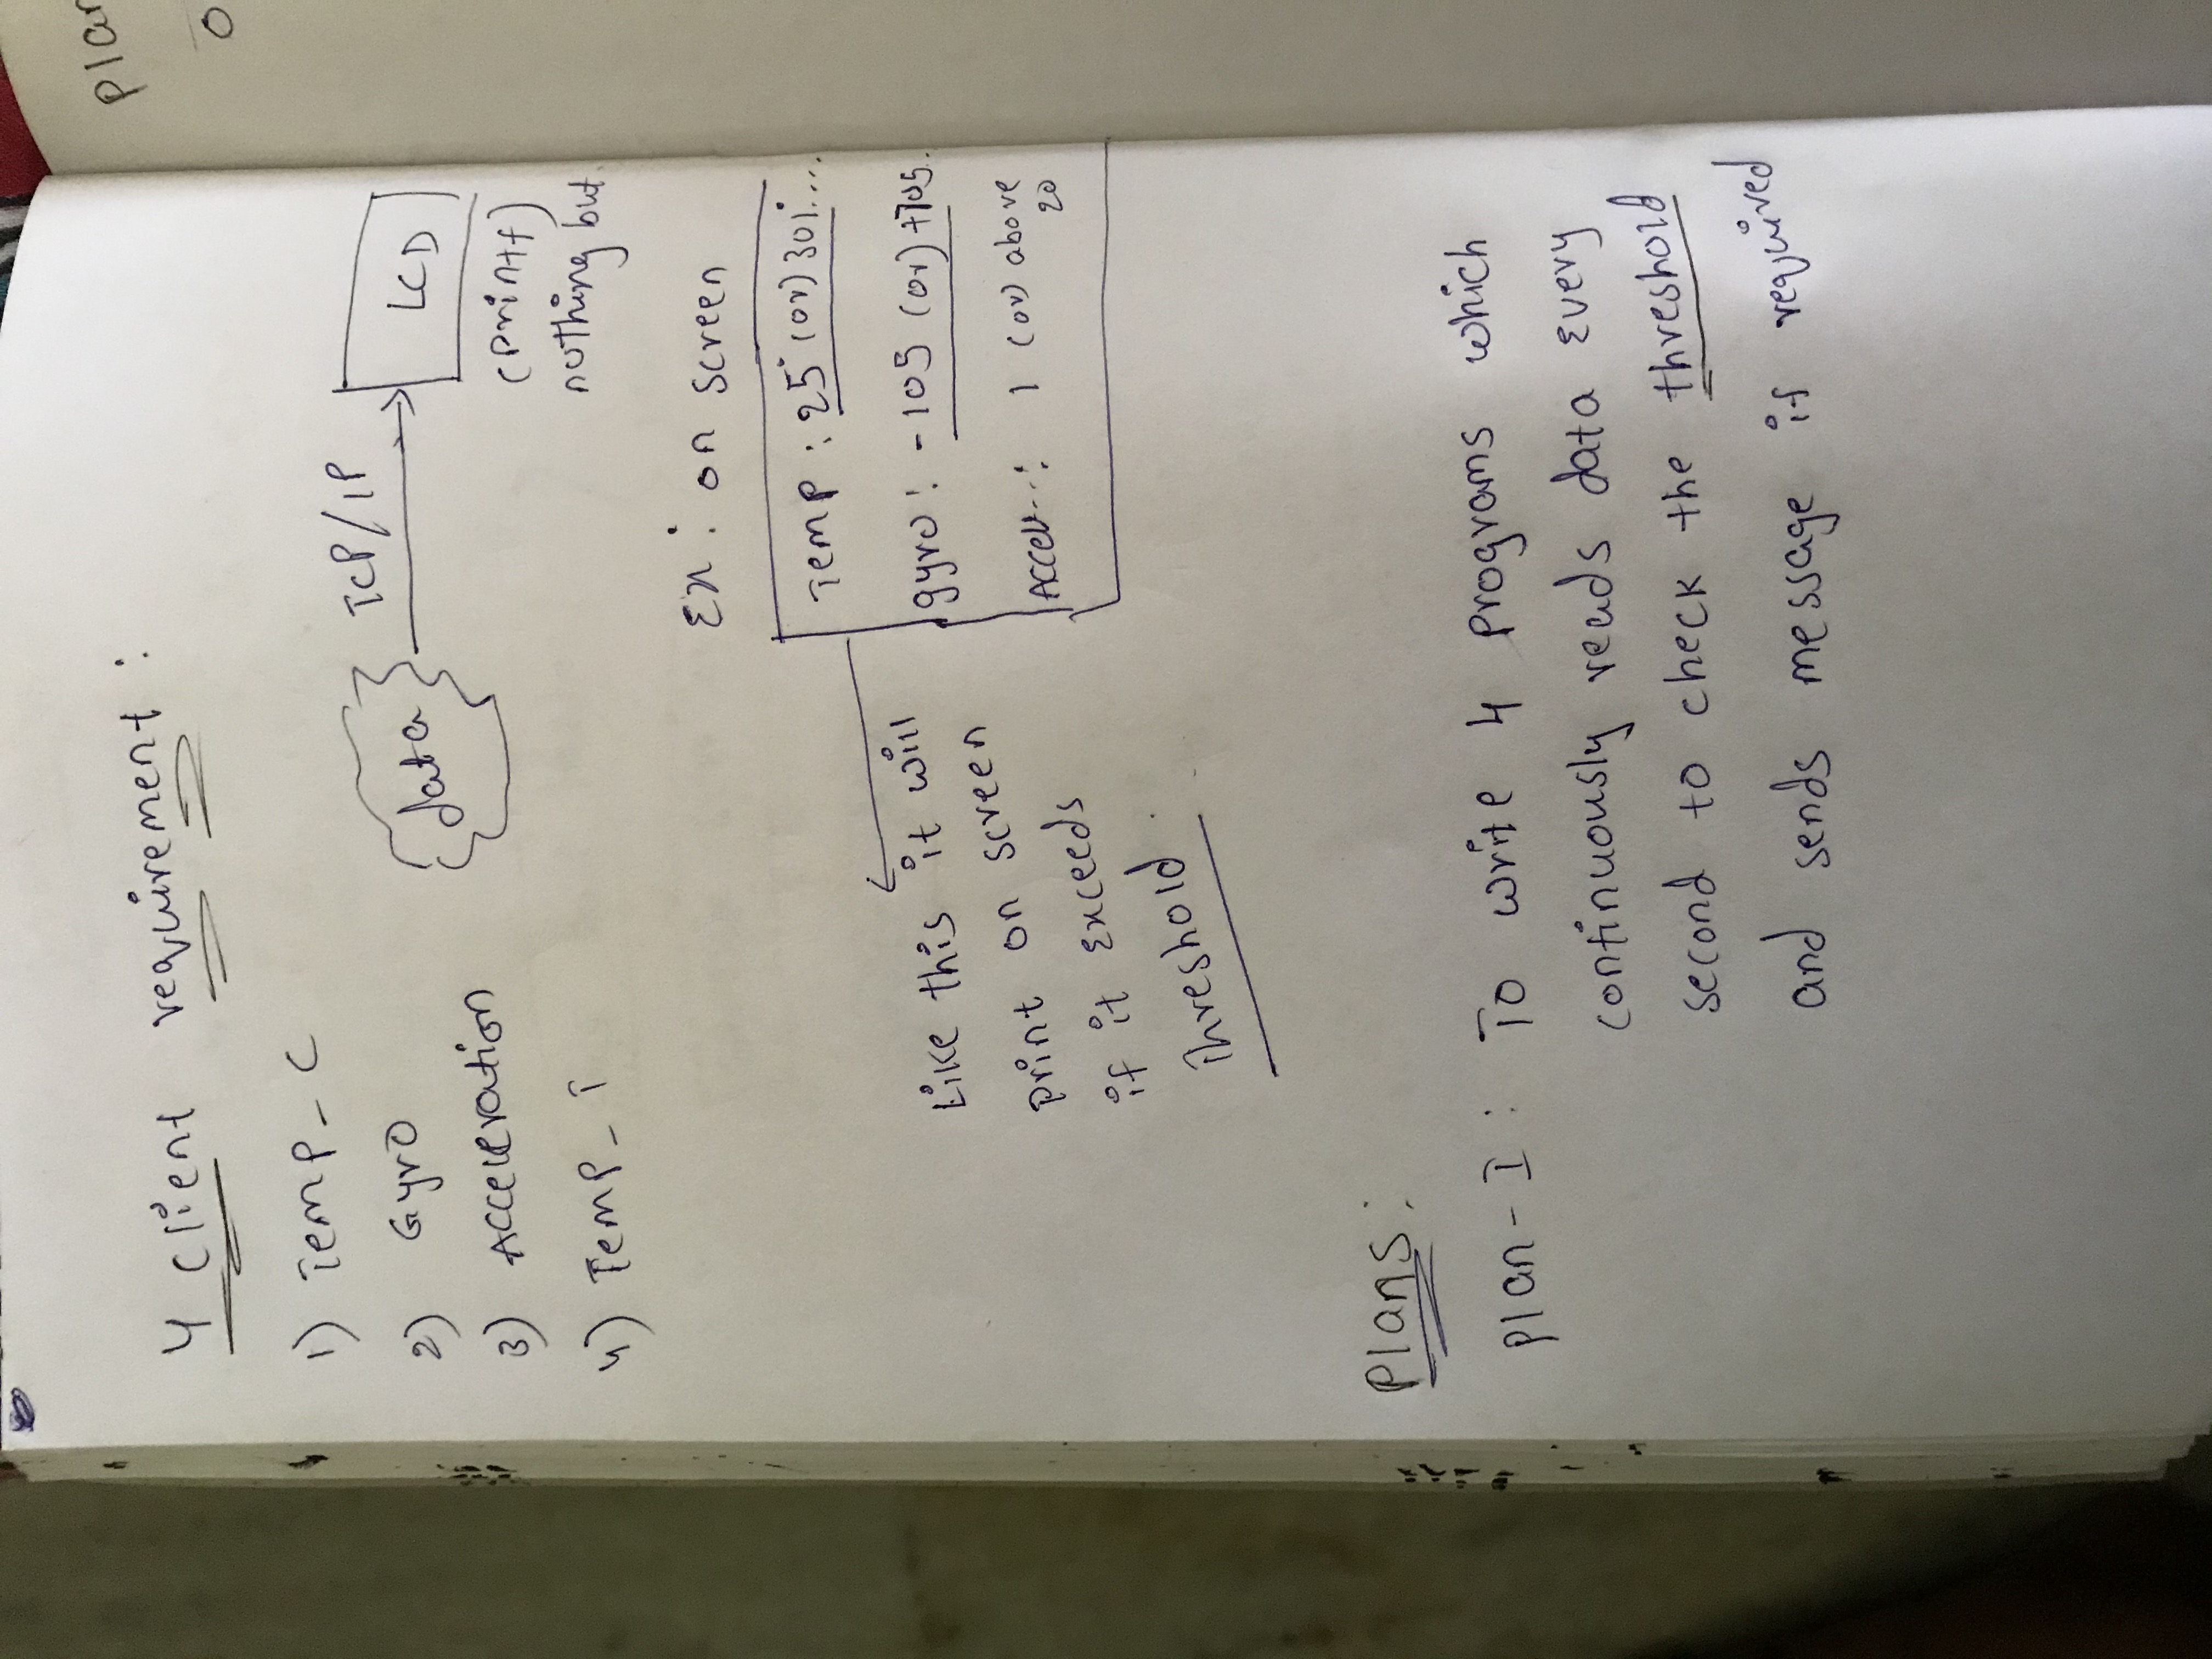 4 client requirement :
1) Temp_C
2) Gyro
3) Acceleration
4) Temp_T
data
TCP/IP
LCD
(printf)
nothing but
Ex : on screen
Temp : 25° (or) 30
gyro : -105 (or) +105..
Accele..: 1 (or) above
20
Like this it will
print on screen
if it exceeds
threshold.
Plans :
Plan-I : To write 4 programs which
continuously reads data every
second to check the threshold
and sends message if required
Plan